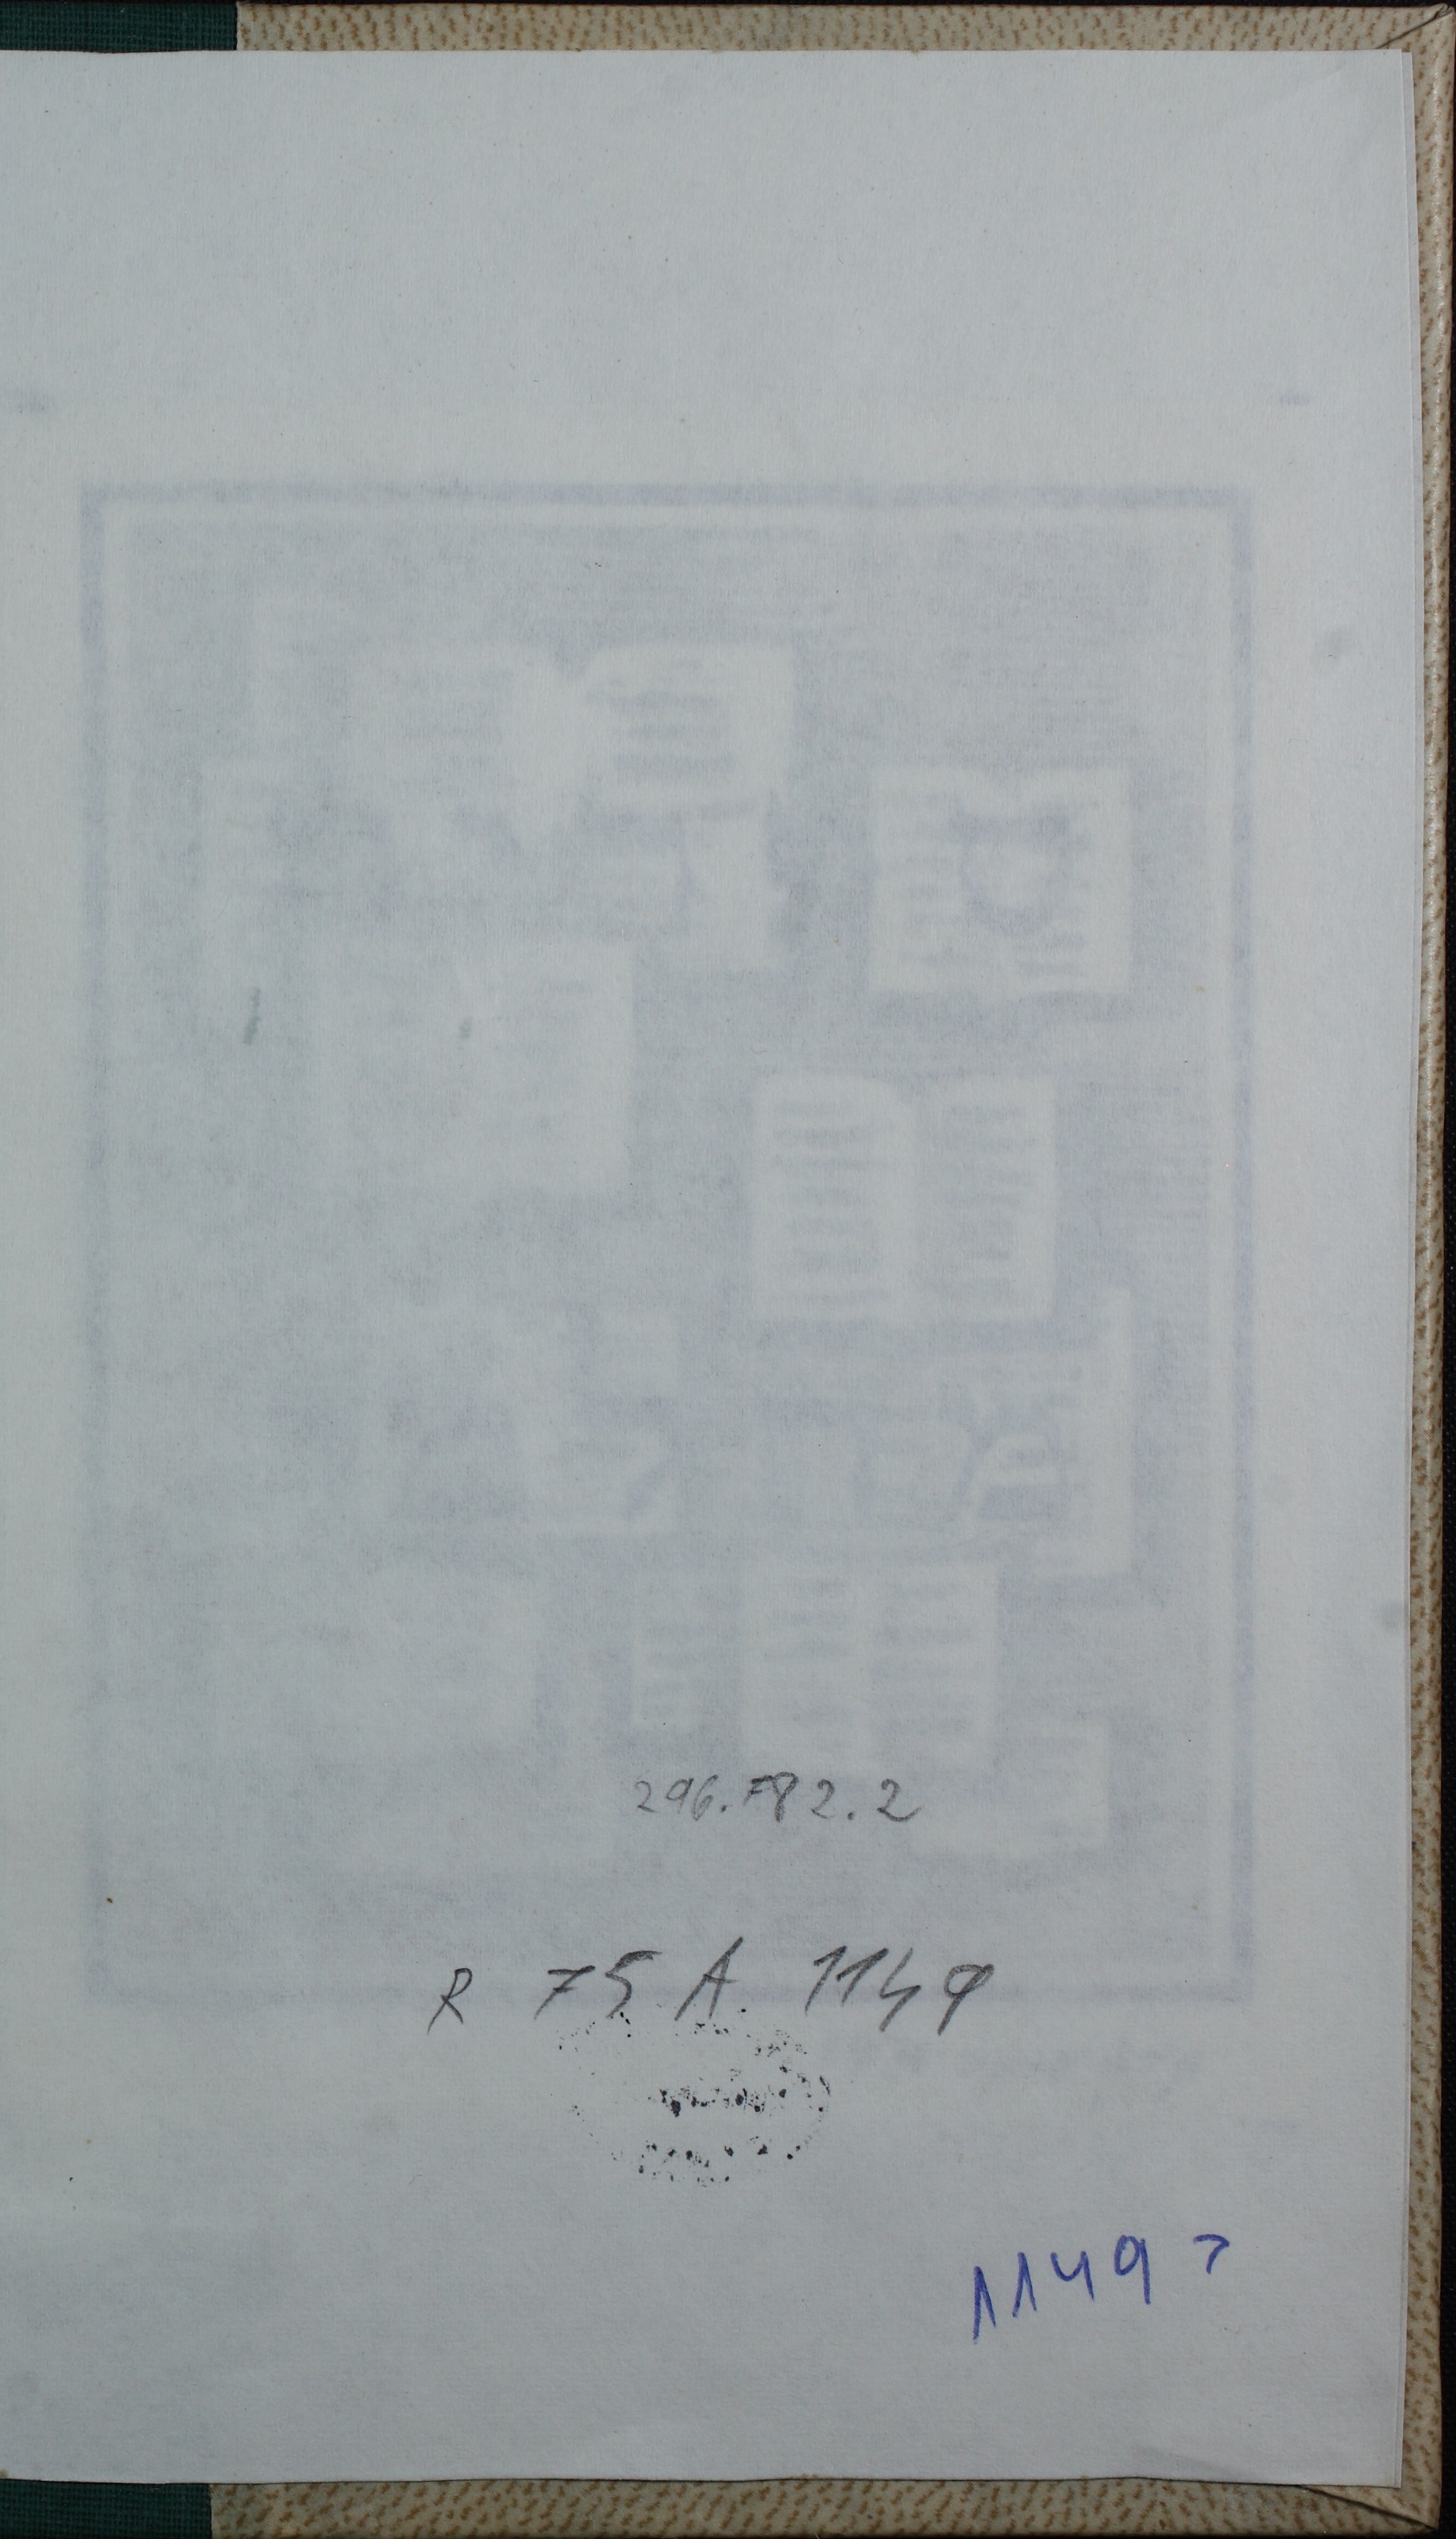 296.782.2
R 75 A 1149
11497